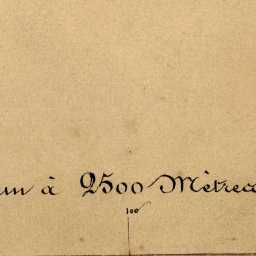 un à 2500 Mètres
100